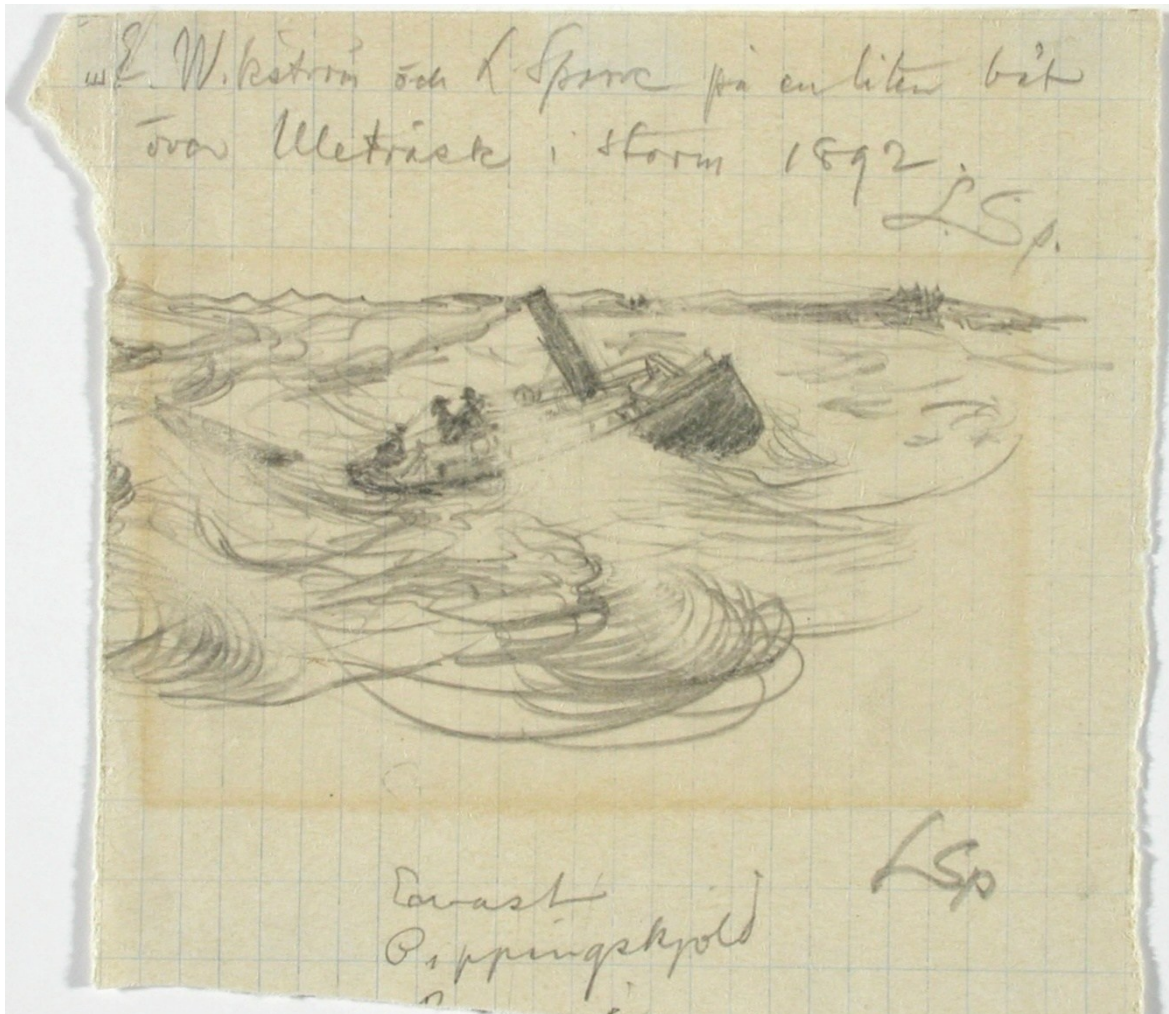 E. Wikström och L Sparre på en liten båt
över Uleträsk i storm 1892.
L.Sp.
LSp
Enwast
Pippingskjold